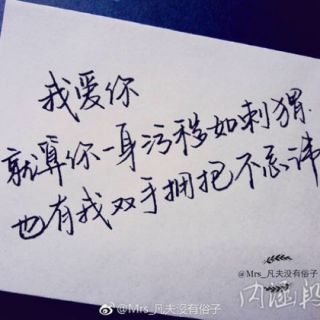 我爱你
就算你一身污秽如刺猬
也有我双手拥抱不忌讳
@Mrs_凡夫没有俗子
内涵段
@Mrs_凡夫没有俗子